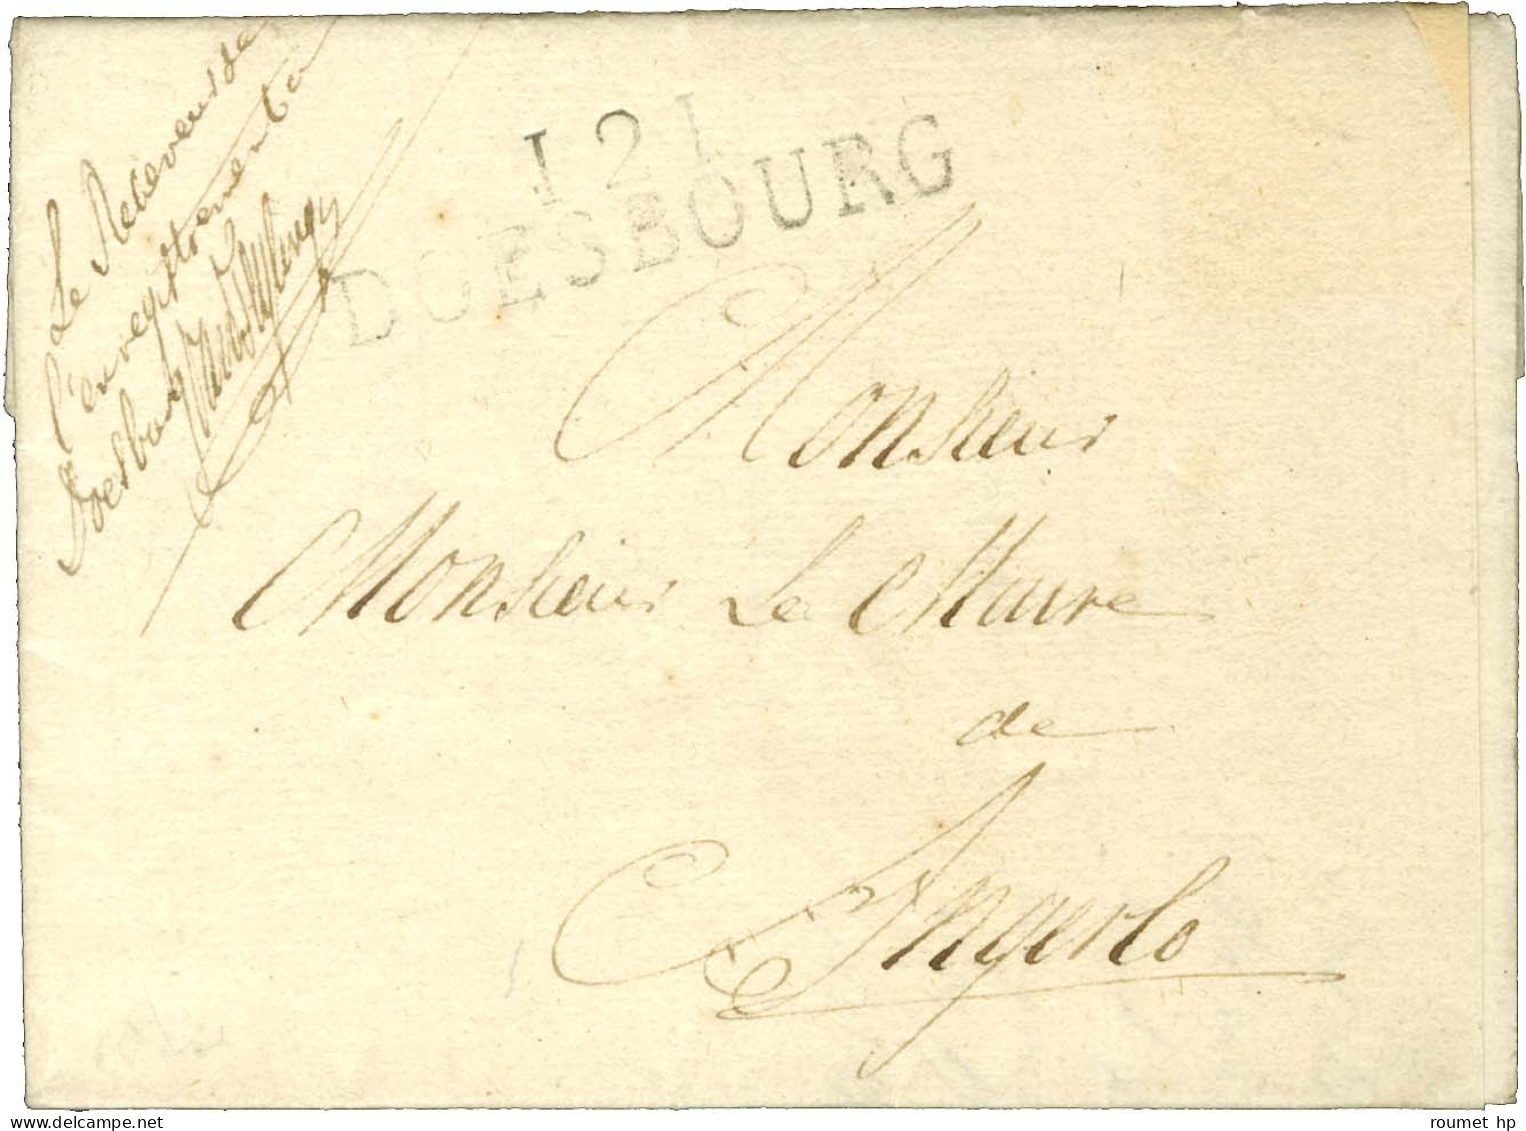 Le Receveur de
l'enregistrement à
Doesbourg
121
DOESBOURG
Monsieur
Monsieur Le Maire
de
Angerlo
roumet hp